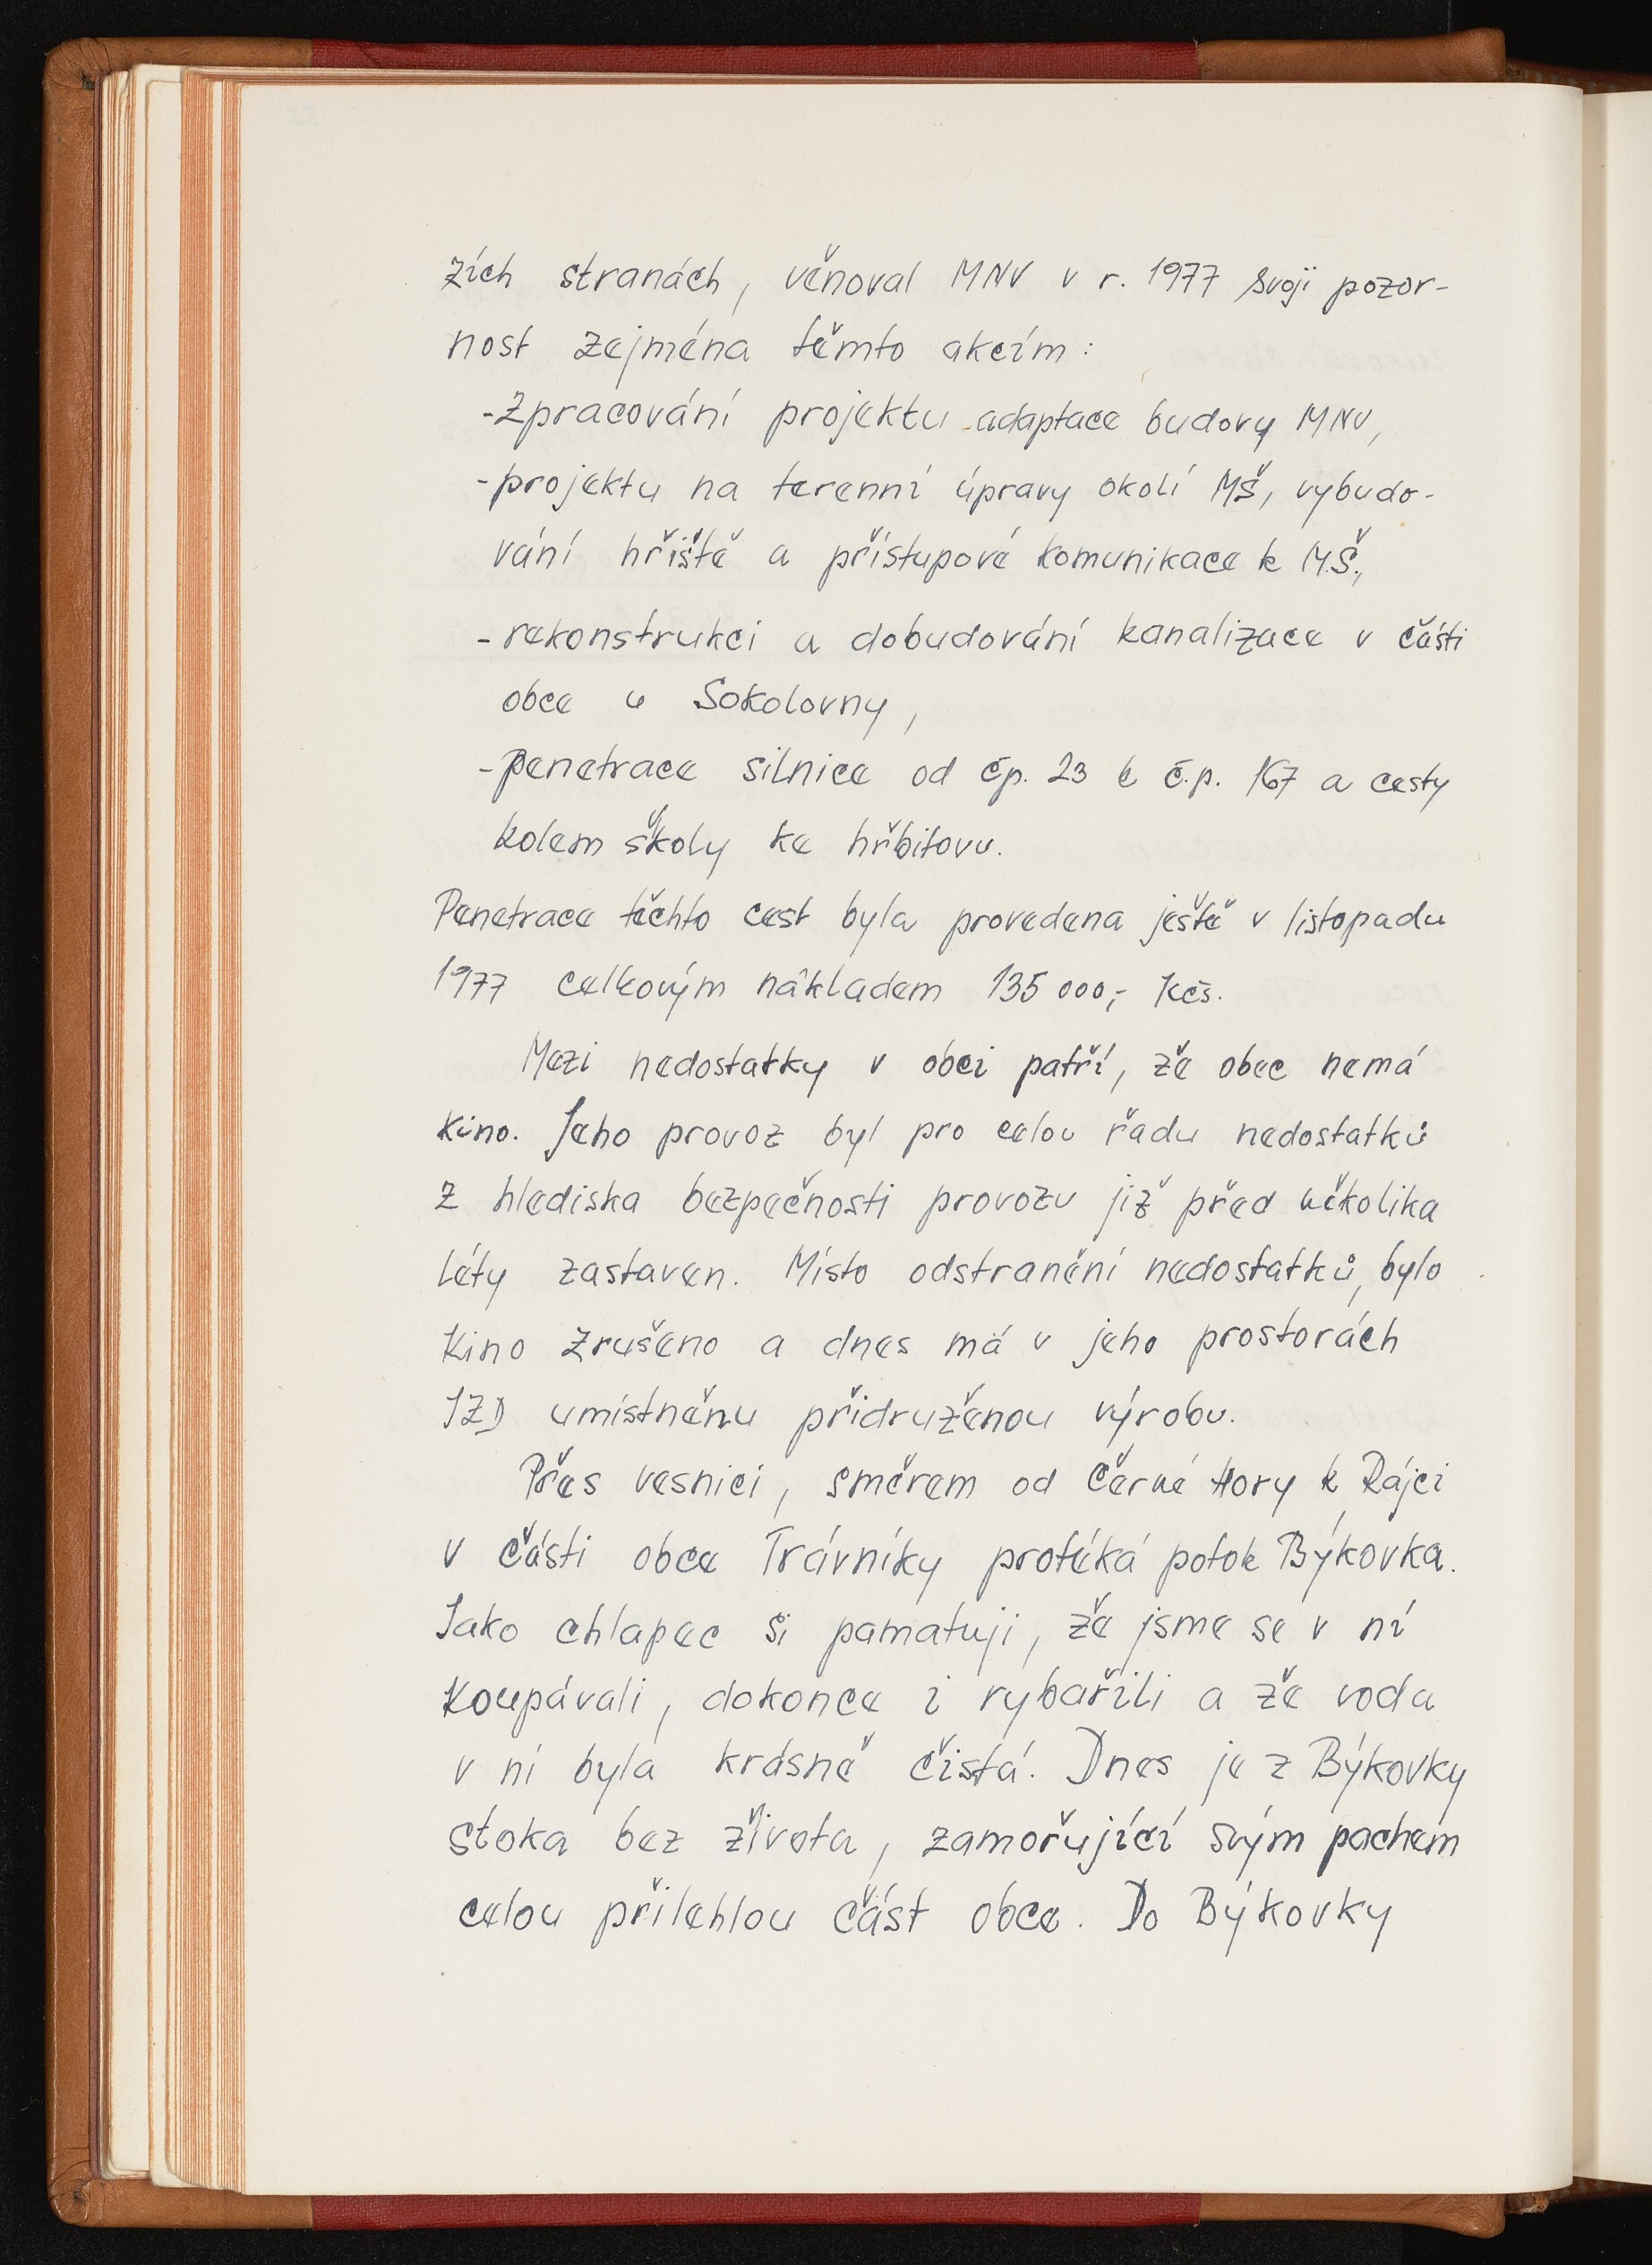 zích stranách, věnoval MNV v r. 1977 svoji pozor-
nost zejména těmto akcím:
-Zpracování projektu adaptace budovy MNV,
-projektu na terenní úpravy okolí MŠ, vybudo-
vání hřiště a přístupové komunikace k M.Š.,
-rekonstrukci a dobudování kanalizace v části
obce u Sokolovny,
-penetrace silnice od čp. 23 k č.p. 167 a cesty
kolem školy ke hřbitovu.
Penetrace těchto cest byla provedena ještě v listopadu
1977 celkovým nákladem 135 000,- Kčs.
Mezi nedostatky v obci patří, že obec nemá
kino. Jeho provoz byl pro celou řadu nedostatků
z hlediska bezpečnosti provozu již před několika
léty zastaven. Místo odstranění nedostatků, bylo
kino zrušeno a dnes má v jeho prostorách
JZD umístněnu přidruženou výrobu.
Přes vesnici, směrem od Černé Hory k Rájci
v části obce Trávníky protéká potok Býkovka.
Jako chlapec si pamatuji, že jsme se v ní
koupávali, dokonce i rybařili a že voda
v ní byla krásně čistá. Dnes je z Býkovky
stoka bez života, zamořující svým pachem
celou přilehlou část obce. Do Býkovky